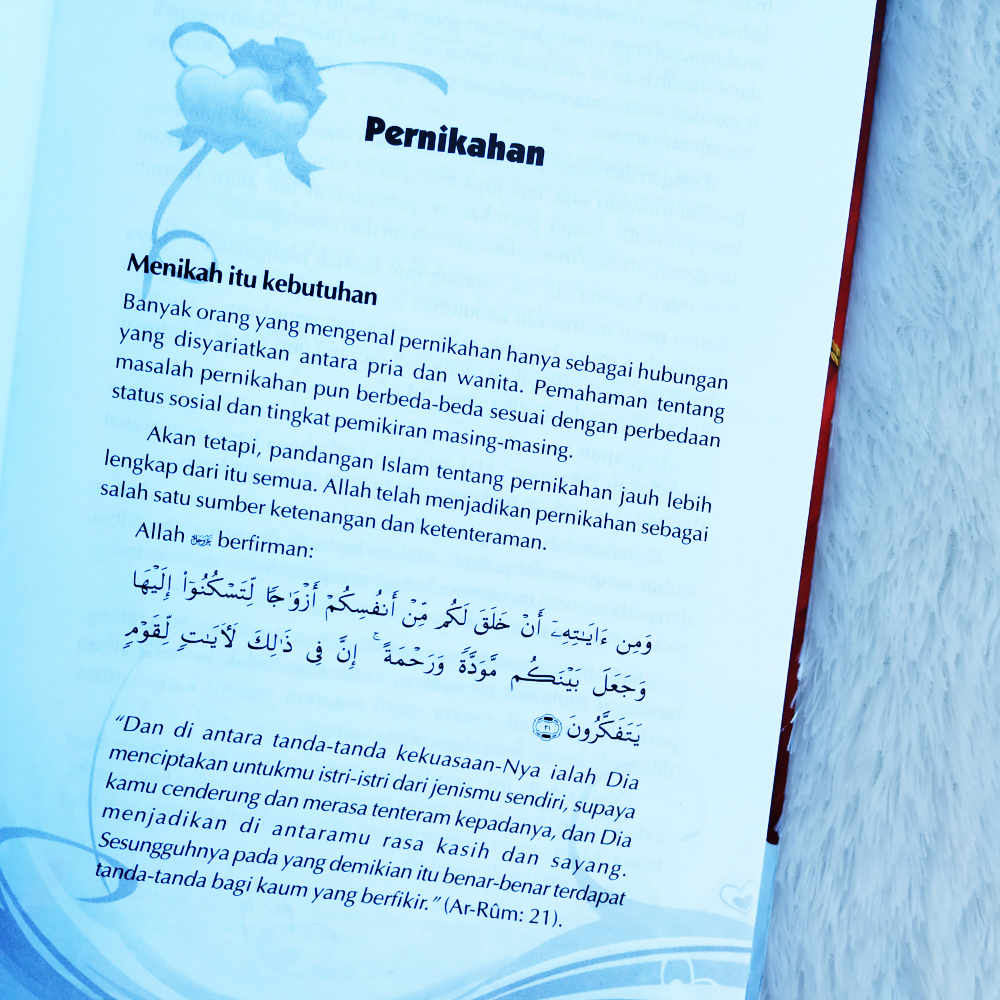 Pernikahan
Menikah itu kebutuhan
Banyak orang yang mengenal pernikahan hanya sebagai hubungan
yang disyariatkan antara pria dan wanita. Pemahaman tentang
masalah pernikahan pun berbeda-beda sesuai dengan perbedaan
status sosial dan tingkat pemikiran masing-masing.
Akan tetapi, pandangan Islam tentang pernikahan jauh lebih
lengkap dari itu semua. Allah telah menjadikan pernikahan sebagai
salah satu sumber ketenangan dan ketenteraman.
Allah berfirman:
وَمِن ءَايَـٰتِهِۦٓ أَنْ خَلَقَ لَكُم مِّنْ أَنفُسِكُمْ أَزْوَٰجًا لِّتَسْكُنُوٓا۟ إِلَيْهَا
وَجَعَلَ بَيْنَكُم مَّوَدَّةً وَرَحْمَةً ۚ إِنَّ فِى ذَٰلِكَ لَـَٔايَـٰتٍ لِّقَوْمٍ
يَتَفَكَّرُونَ ٢١
“Dan di antara tanda-tanda kekuasaan-Nya ialah Dia
menciptakan untukmu istri-istri dari jenismu sendiri, supaya
kamu cenderung dan merasa tenteram kepadanya, dan Dia
menjadikan di antaramu rasa kasih dan sayang.
Sesungguhnya pada yang demikian itu benar-benar terdapat
tanda-tanda bagi kaum yang berfikir.” (Ar-Rûm: 21).